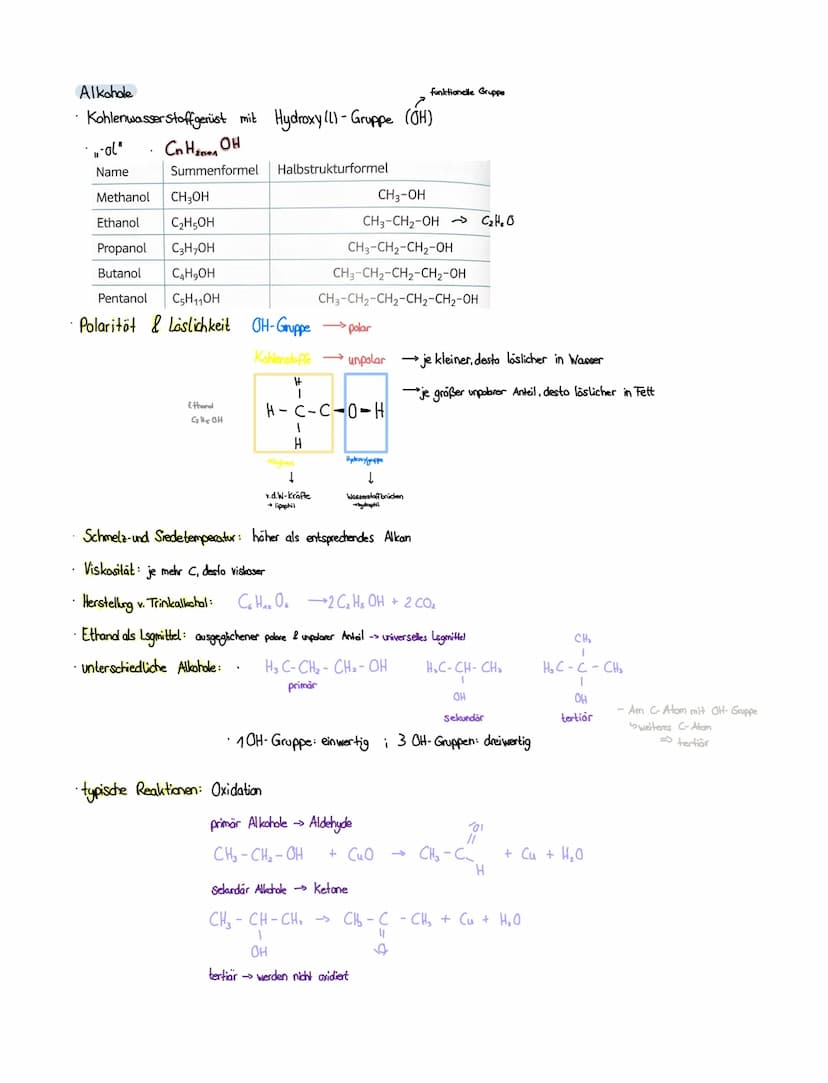 Alkohole
funktionelle Gruppe
· Kohlenwasserstoffgerüst mit Hydroxy(l)-Gruppe (OH)
· „-ol" · CnH2n+1 OH
Name Summenformel Halbstrukturformel
Methanol CH₃OH CH₃–OH
Ethanol C₂H₅OH CH₃–CH₂–OH → C₂H₆O
Propanol C₃H₇OH CH₃–CH₂–CH₂–OH
Butanol C₄H₉OH CH₃–CH₂–CH₂–CH₂–OH
Pentanol C₅H₁₁OH CH₃–CH₂–CH₂–CH₂–CH₂–OH
· Polarität & Löslichkeit OH-Gruppe → polar
Kohlenstoffe → unpolar → je kleiner, desto löslicher in Wasser
→ je größer unpolarer Anteil, desto löslicher in Fett
H
Ethanol
H – C – C – O – H
C₂H₅OH
H
Hydroxylgruppe
↓ ↓
v.d.W-Kräfte Wasserstoffbrücken
→ lipophil → hydrophil
· Schmelz- und Siedetemperatur: höher als entsprechendes Alkan
· Viskosität: je mehr C, desto viskoser
· Herstellung v. Trinkalkohol: C₆H₁₂O₆ → 2 C₂H₅OH + 2 CO₂
· Ethanol als Lsgmittel: ausgeglichener polare & unpolarer Anteil -> universelles Lsgmittel
CH₃
· unterschiedliche Alkohole: · H₃C-CH₂-CH₂-OH H₃C-CH-CH₃ H₃C-C-CH₃
primär OH OH
sekundär tertiär
- Am C-Atom mit OH-Gruppe
↳ weiteres C-Atom
⇒ tertiär
· 1 OH-Gruppe: einwertig ; 3 OH-Gruppen: dreiwertig
· typische Reaktionen: Oxidation
primär Alkohole → Aldehyde
O
CH₃-CH₂-OH + CuO → CH₃-C + Cu + H₂O
H
sekundär Alkohole → Ketone
CH₃-CH-CH₃ → CH₃-C-CH₃ + Cu + H₂O
OH O
tertiär → werden nicht oxidiert